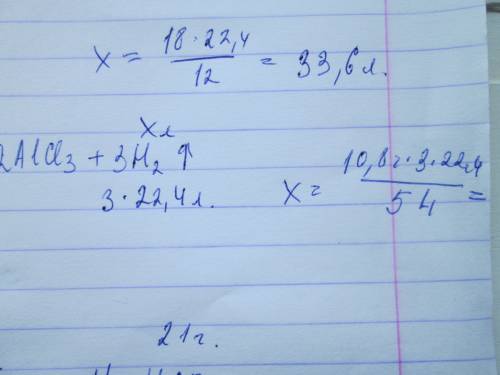 x = 18·22,4 / 12 = 33,6 л.
x л
2AlCl3 + 3H2 ↑
3·22,4 л.
x = 10,8г·3·22,4 / 54 =
21г.